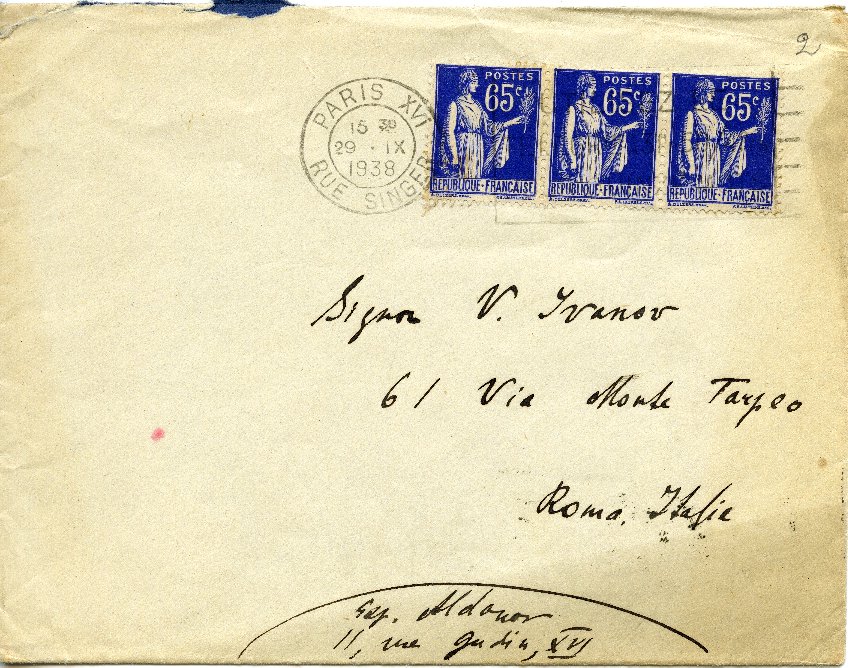 2
PARIS XVI
15 30
29 · IX
1938
RUE SINGER
POSTES
65c
REPUBLIQUE·FRANÇAISE
POSTES
65c
REPUBLIQUE·FRANÇAISE
POSTES
65c
REPUBLIQUE·FRANÇAISE
Signor V. Ivanov
61 Via Monte Tarpeo
Roma, Italie
Exp. Aldanov
11, rue Gudin, XVI